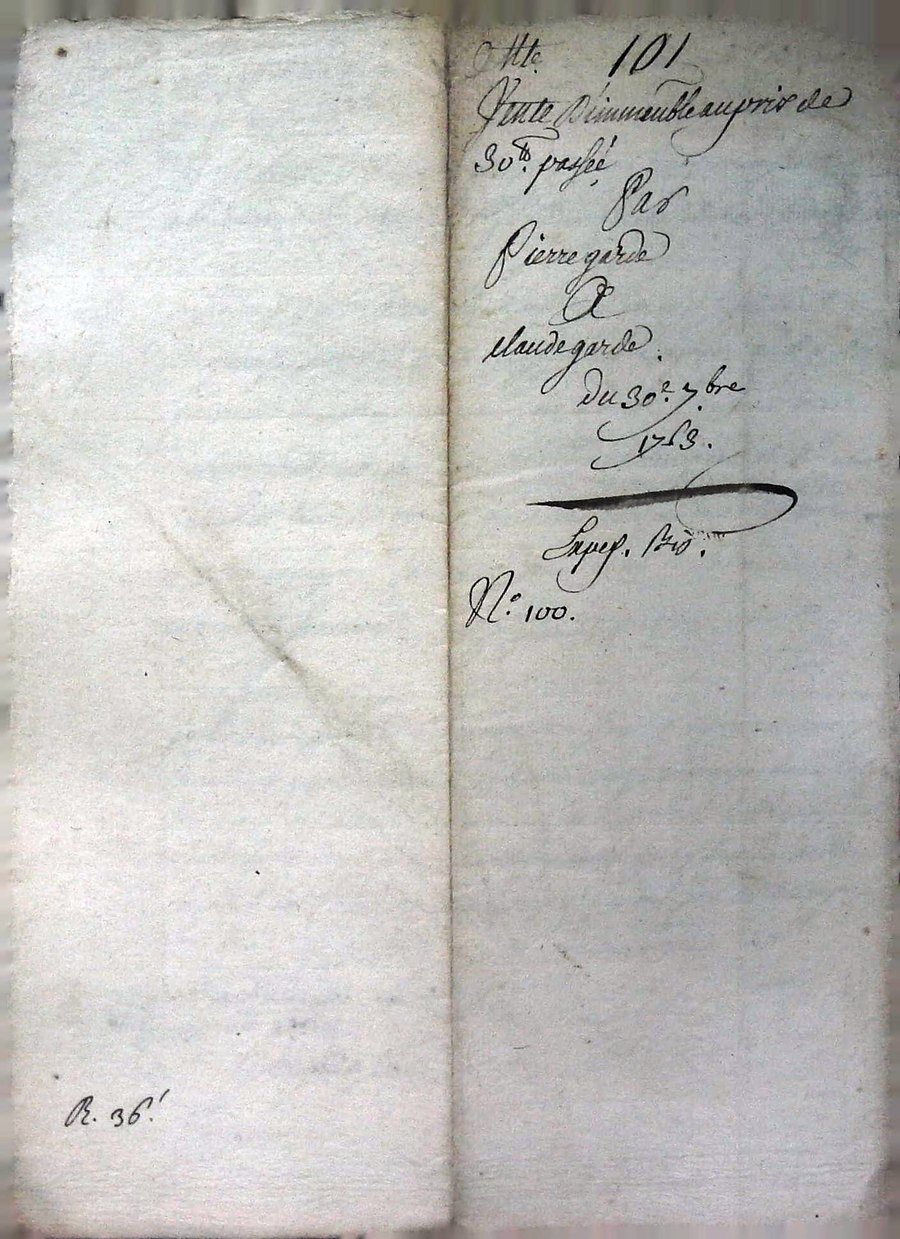 101
Vente d'immeuble au prix de
30tt. passée
Par
Pierre garde
A
Claude garde.
du 30e. 7.bre
1763.
Exped. 
N.o 100.
R. 36.